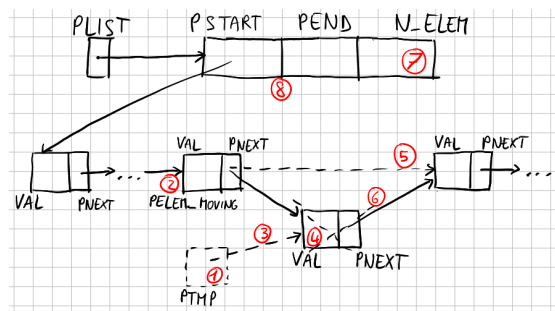 PLIST PSTART PEND N_ELEM
7
8
VAL PNEXT 5 VAL PNEXT
... 2 ...
VAL PNEXT PELEM_MOVING 6
3 4
1 VAL PNEXT
PTMP